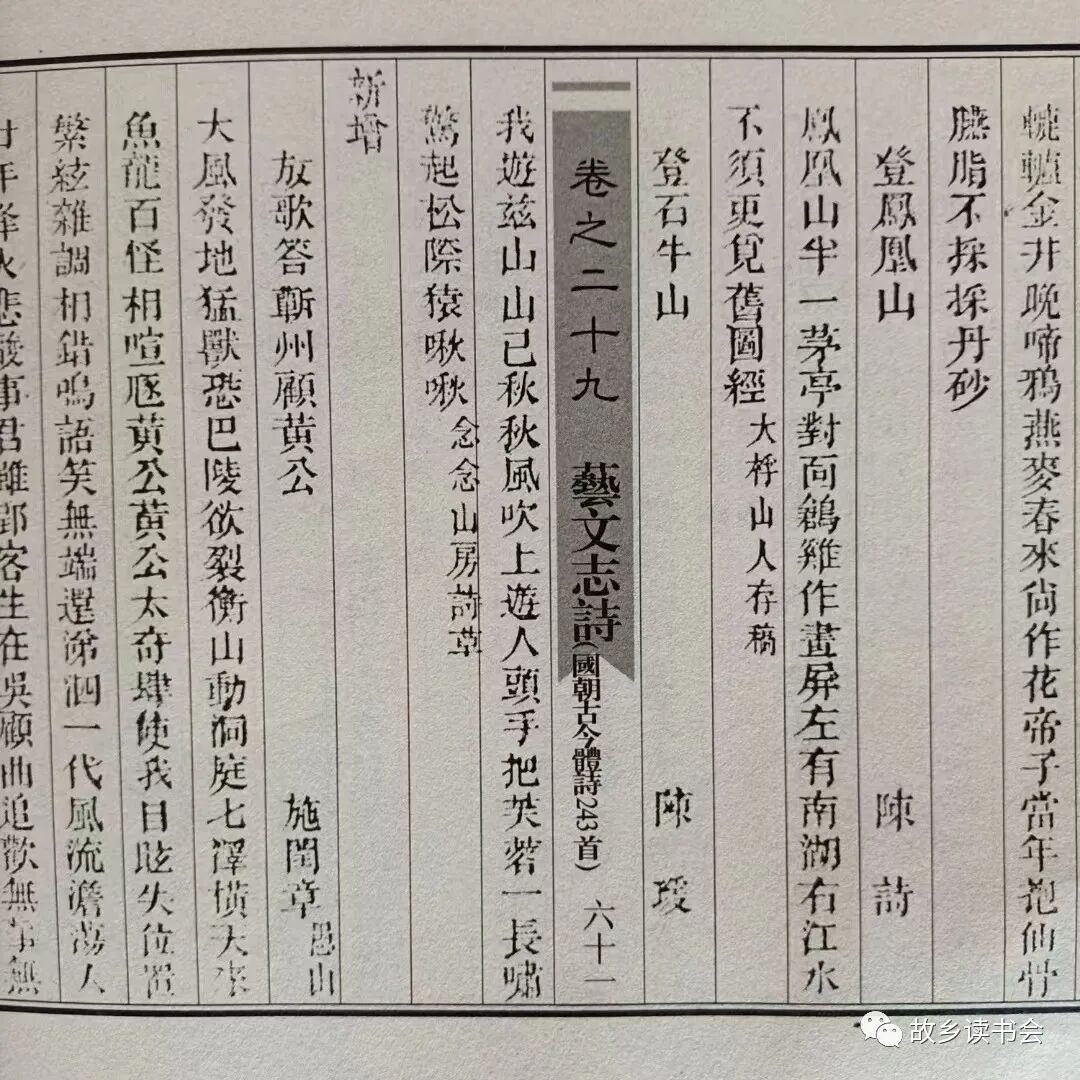 轆轤金井晚啼鴉燕麥春來尙作花帝子當年抱仙骨
臙脂不採採丹砂
登鳳凰山 陳詩
鳳凰山半一茅亭對面鵝雞作畫屏左有南湖右江水
不須更覓舊圖經 大桴山人存稿
登石牛山 陳瑗
卷之二十九 藝文志詩(國朝古今體詩243首) 六十一
我遊兹山山已秋秋風吹上遊人頭手把芙蓉一長嘯
驚起松際猿啾啾 念念山房詩草
新增
放歌答蘄州顧黄公 施閏章 愚山
大風發地猛獸恐巴陵欲裂衡山動洞庭七澤橫天來
魚龍百怪相喧豗黄公黄公太奇肆使我目眩失位置
繁絃雜調相錯鳴語笑無端還涕泗一代風流澹蕩人
廿年烽火悲酸事君雖郢客生在吳顧曲追歡無事無
故乡读书会